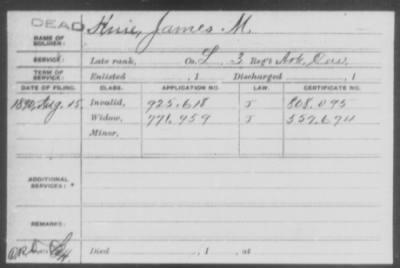 DEAD
NAME OF SOLDIER: James M.
SERVICE: Late rank, Co. L 3 Reg't Ark. Cav.
TERM OF SERVICE: Enlisted , 1 Discharged , 1
DATE OF FILING. CLASS. APPLICATION NO. LAW. CERTIFICATE NO.
1890, Aug. 15. Invalid, 925.618 J 808.095
Widow, 771,959 J 557,674
Minor,
ADDITIONAL SERVICES:
REMARKS:
Died , 1 , at